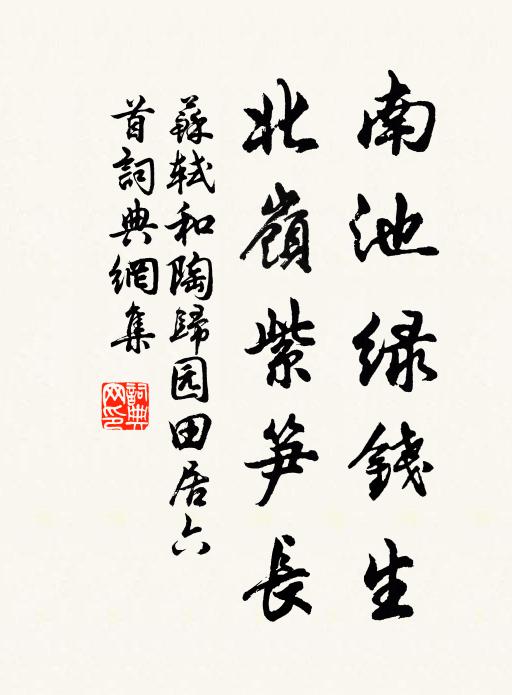 南池绿錢生
北嶺紫笋長
蘇軾和陶歸园田居六
首詞典網集
詞典
网印